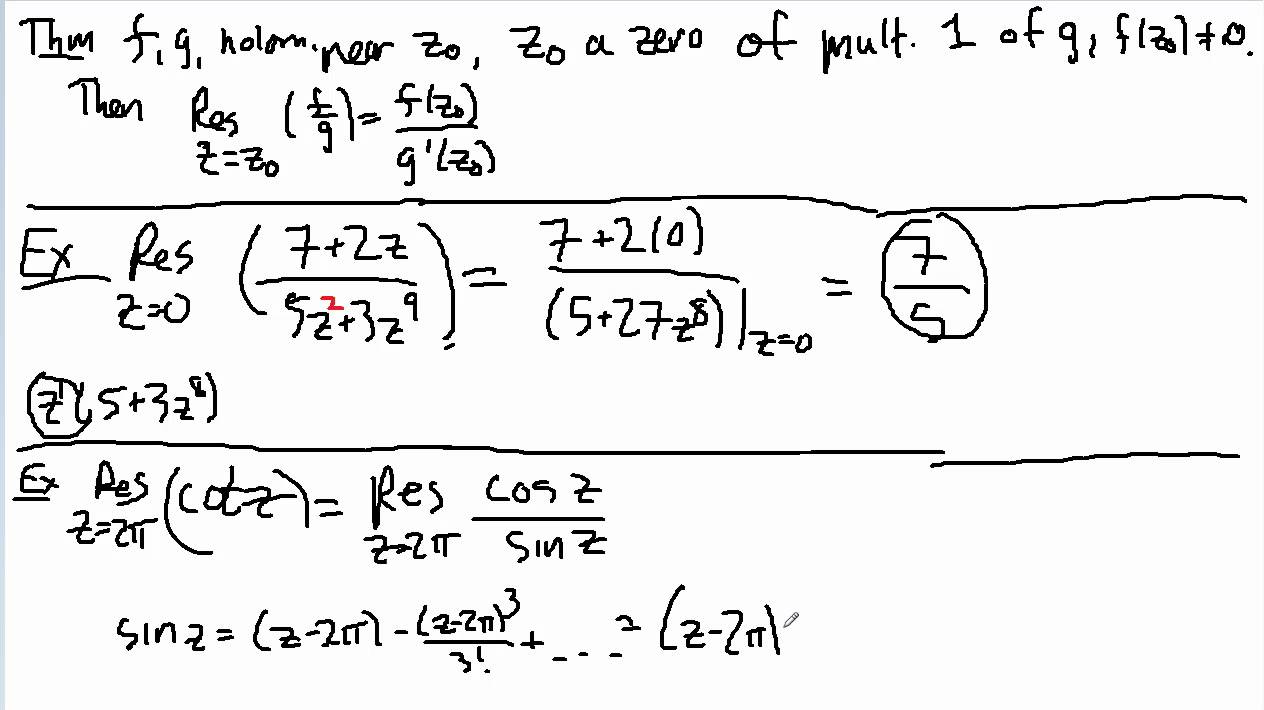 Thm f, g, holom. near z₀, z₀ a zero of mult. 1 of g, f(z₀)≠0.
Then Res_{z=z₀} (f/g) = f(z₀)/g'(z₀)
Ex Res_{z=0} ((7+2z)/(5z²+3z⁹)) = (7+2(0))/((5+27z⁸)|_{z=0}) = 7/5
z¹(5+3z⁸)
Ex Res_{z=2π} (cot z) = Res_{z=2π} cos z/sin z
sin z = (z-2π) - (z-2π)³/3! + ... = (z-2π)